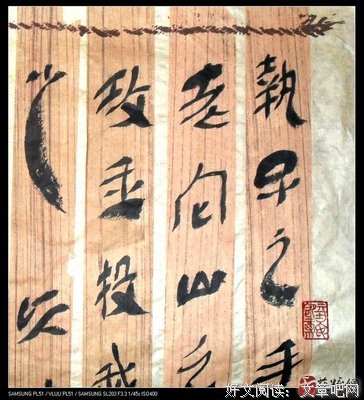 執子之手
老它山之
攻玉投我
SAMSUNG PL51 / VLUU PL51 / SAMSUNG SL203 F3.3 1/45s ISO400
好文阅读：文章吧网